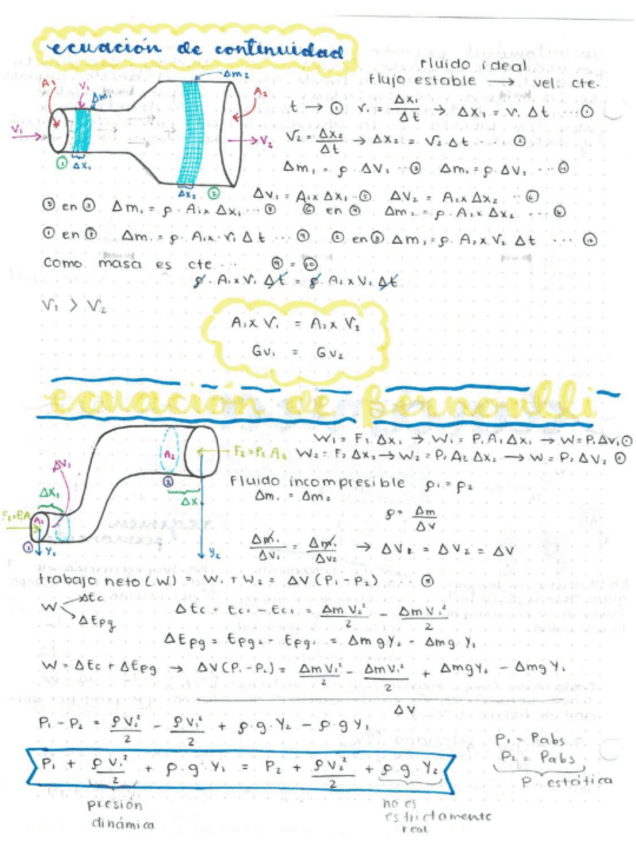 ecuación de continuidad
fluido ideal
flujo estable → vel. cte.
A₁ V₁ Δm₁ Δm₂ A₂
V₁ → → V₂
① Δx₁ Δx₂ ②
t → ① V₁ = Δx₁/Δt → Δx₁ = V₁ Δt ... ①
V₂ = Δx₂/Δt → Δx₂ = V₂ Δt ... ②
Δm₁ = ρ · ΔV₁ ... ③ Δm₂ = ρ ΔV₂ ... ④
ΔV₁ = A₁x Δx₁ ... ⑤ ΔV₂ = A₂x Δx₂ ... ⑥
en Δm₁ = ρ · A₁x Δx₁ ... en Δm₂ = ρ · A₂x Δx₂ ...
① en Δm₁ = ρ · A₁x V₁ Δt ... ⑨ en Δm₂ = ρ A₂x V₂ Δt ... ⑩
como masa es cte ... ⑨ = ⑩
ρ · A₁x V₁ Δt = ρ · A₂x V₂ Δt
V₁ > V₂
A₁x V₁ = A₂x V₂
Gv₁ = Gv₂
ecuación de Bernoulli
W₁ = F₁ Δx₁ → W₁ = P₁ A₁ Δx₁ → W = P₁ ΔV₁ ①
F₂ = P₂ A₂ W₂ = F₂ Δx₂ → W₂ = P₂ A₂ Δx₂ → W = P₂ ΔV₂ ②
A₂ ΔV₁ Δx₁ ② Δx
A₁ ① Y₁ Y₂
fluido incompresible ρ₁ = ρ₂
Δm₁ = Δm₂
ρ = Δm/ΔV
Δm₁/ΔV₁ = Δm₂/ΔV₂ → ΔV₁ = ΔV₂ = ΔV
trabajo neto (W) = W₁ + W₂ = ΔV (P₁ - P₂) ...
W ΔEc ΔEpg
ΔEc = Ec₂ - Ec₁ = Δm V₂²/2 - Δm V₁²/2
ΔEpg = Epg₂ - Epg₁ = Δm g Y₂ - Δm g Y₁
W = ΔEc + ΔEpg → ΔV (P₁ - P₂) = Δm V₂²/2 - Δm V₁²/2 + Δm g Y₂ - Δm g Y₁
ΔV
P₁ - P₂ = ρ V₂²/2 - ρ V₁²/2 + ρ · g · Y₂ - ρ g Y₁
P₁ + ρ V₁²/2 + ρ · g Y₁ = P₂ + ρ V₂²/2 + ρ g Y₂
presión
dinámica
no es
estrictamente
real
P₁ = Pabs
P₂ = Pabs
P. estática